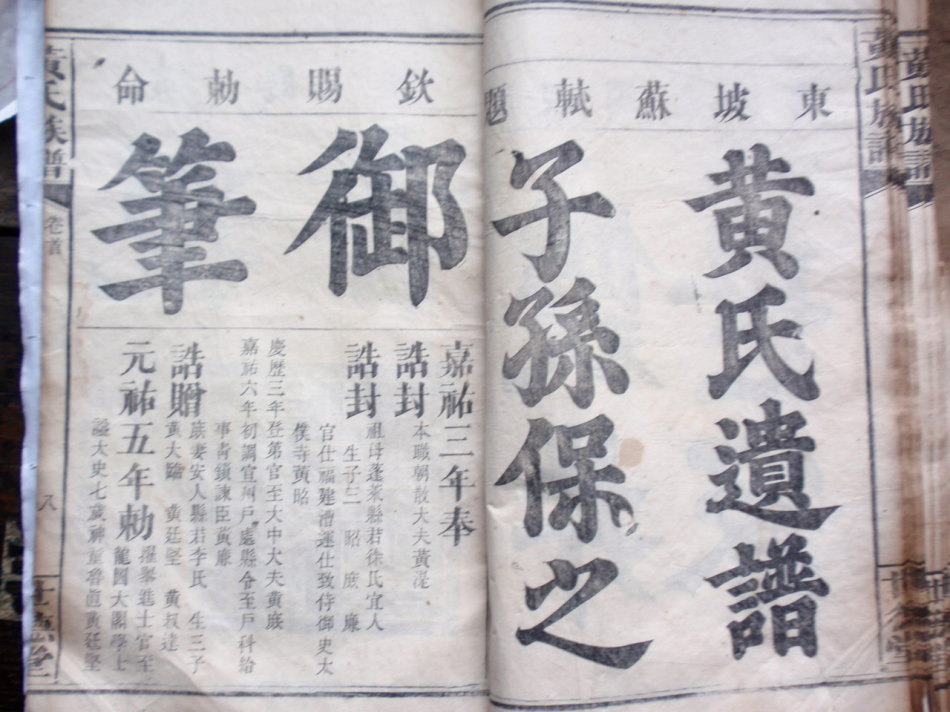 黃氏族譜
東坡蘇軾題
黃氏遺譜
子孫保之
欽賜勅命
御筆
嘉祐三年奉
誥封
本職朝散大夫黃湜
誥封
祖母蓬萊縣君徐氏宜人
生子三 昭 庶 廉
官仕福建漕運仕致侍御史太
僕寺黃昭
慶歷三年登第官至大中大夫黃庶
嘉祐六年初調宣州戶處縣令至戶科給
事靑鎖諫臣黃廉
誥贈
庶妻安人縣君李氏 生三子
黃大臨 黃廷堅 黃叔達
元祐五年勅
擢舉進士官至
龍圖大閣學士
謚太史七歲神童魯直黃廷堅
黃氏族譜
卷首
八